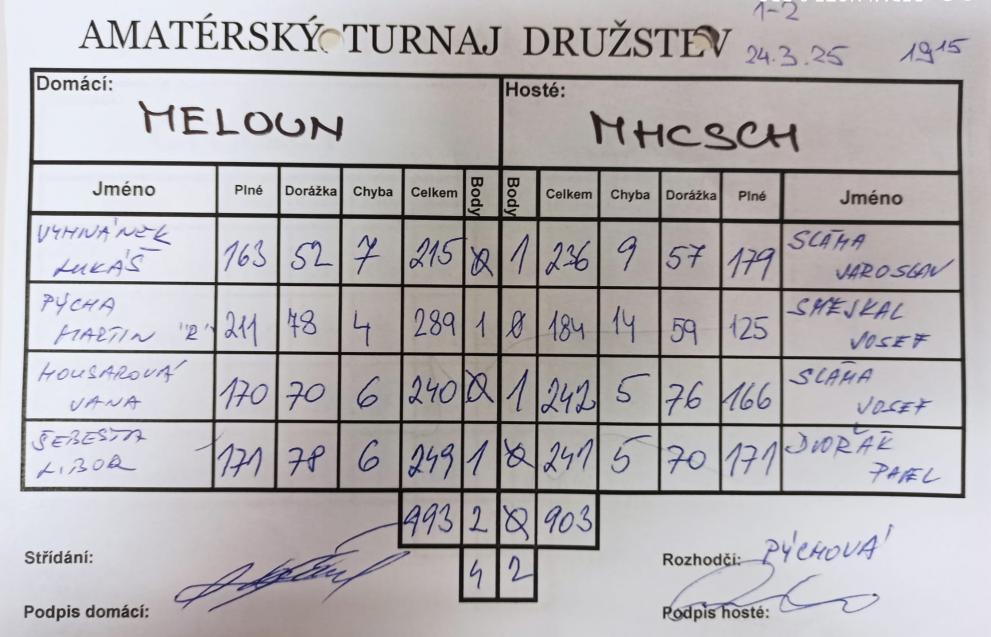 1-2
AMATÉRSKÝ TURNAJ DRUŽSTEV 24.3.25 19 15
Domácí: Hosté:
MELOUN MHCSCH
Jméno Plné Dorážka Chyba Celkem Body Body Celkem Chyba Dorážka Plné Jméno
VYHNÁNEK SLÁMA
LUKÁŠ 163 52 7 215 0 1 236 9 57 179 JAROSLAV
PÝCHA SMEJKAL
MARTIN "R" 211 78 4 289 1 0 184 14 59 125 JOSEF
HOUSAROVÁ SLÁMA
JANA 170 70 6 240 0 1 242 5 76 166 JOSEF
ŠEBESTA DVOŘÁK
LIBOR 171 78 6 249 1 0 241 5 70 171 PAVEL
993 2 0 903
Střídání: Rozhodčí: PÝCHOVÁ
4 2
Podpis domácí: Podpis hosté: